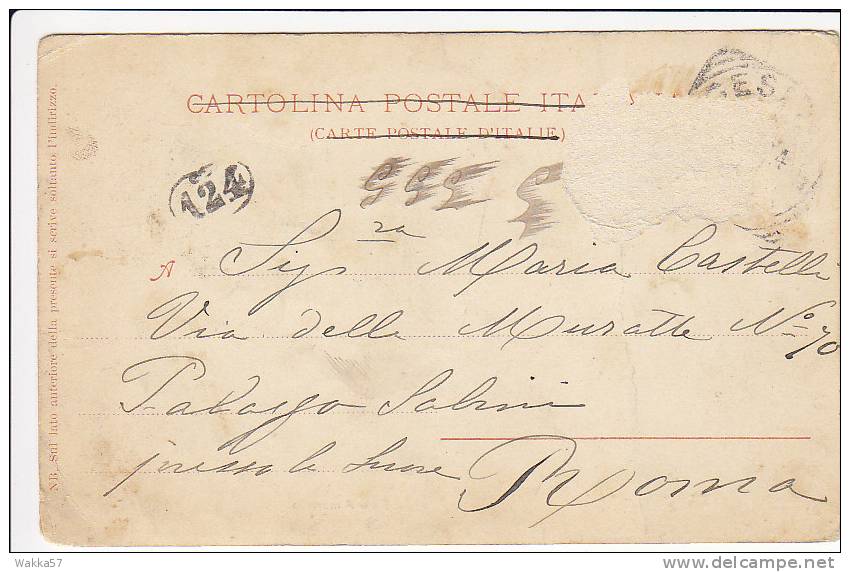 CARTOLINA POSTALE ITA
(CARTE POSTALE D'ITALIE)
124
A Sig.ra Maria Castelli
Via delle Muratte No. 70
Palazzo Sabini
presso le Suore
Roma
NB. Sul lato anteriore della presente si scrive soltanto l'indirizzo.
Wakka57
delcampe.net